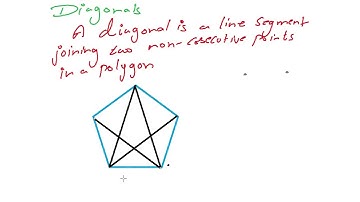 Diagonals
A diagonal is a line segment
joining two non-consecutive points
in a polygon